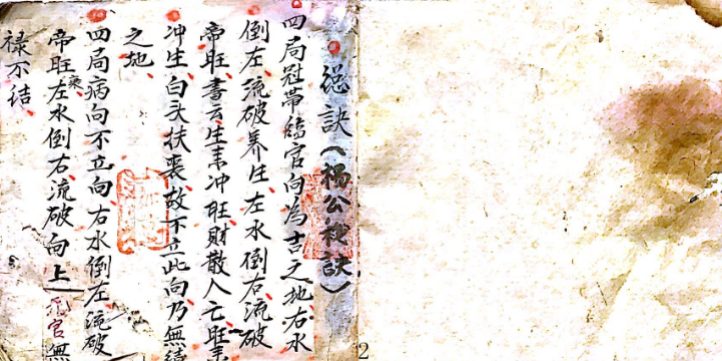 總訣（楊公秘訣）
四局冠帶臨官向為吉之地右水
倒左流破養生左水倒右流破
帝旺書云生來冲旺財散人亡旺去
冲生白头扶喪故不立此向乃無结
之地
四局病向不立向右水倒左流破
帝旺乘左水倒右流破向上官無
禄不结
2